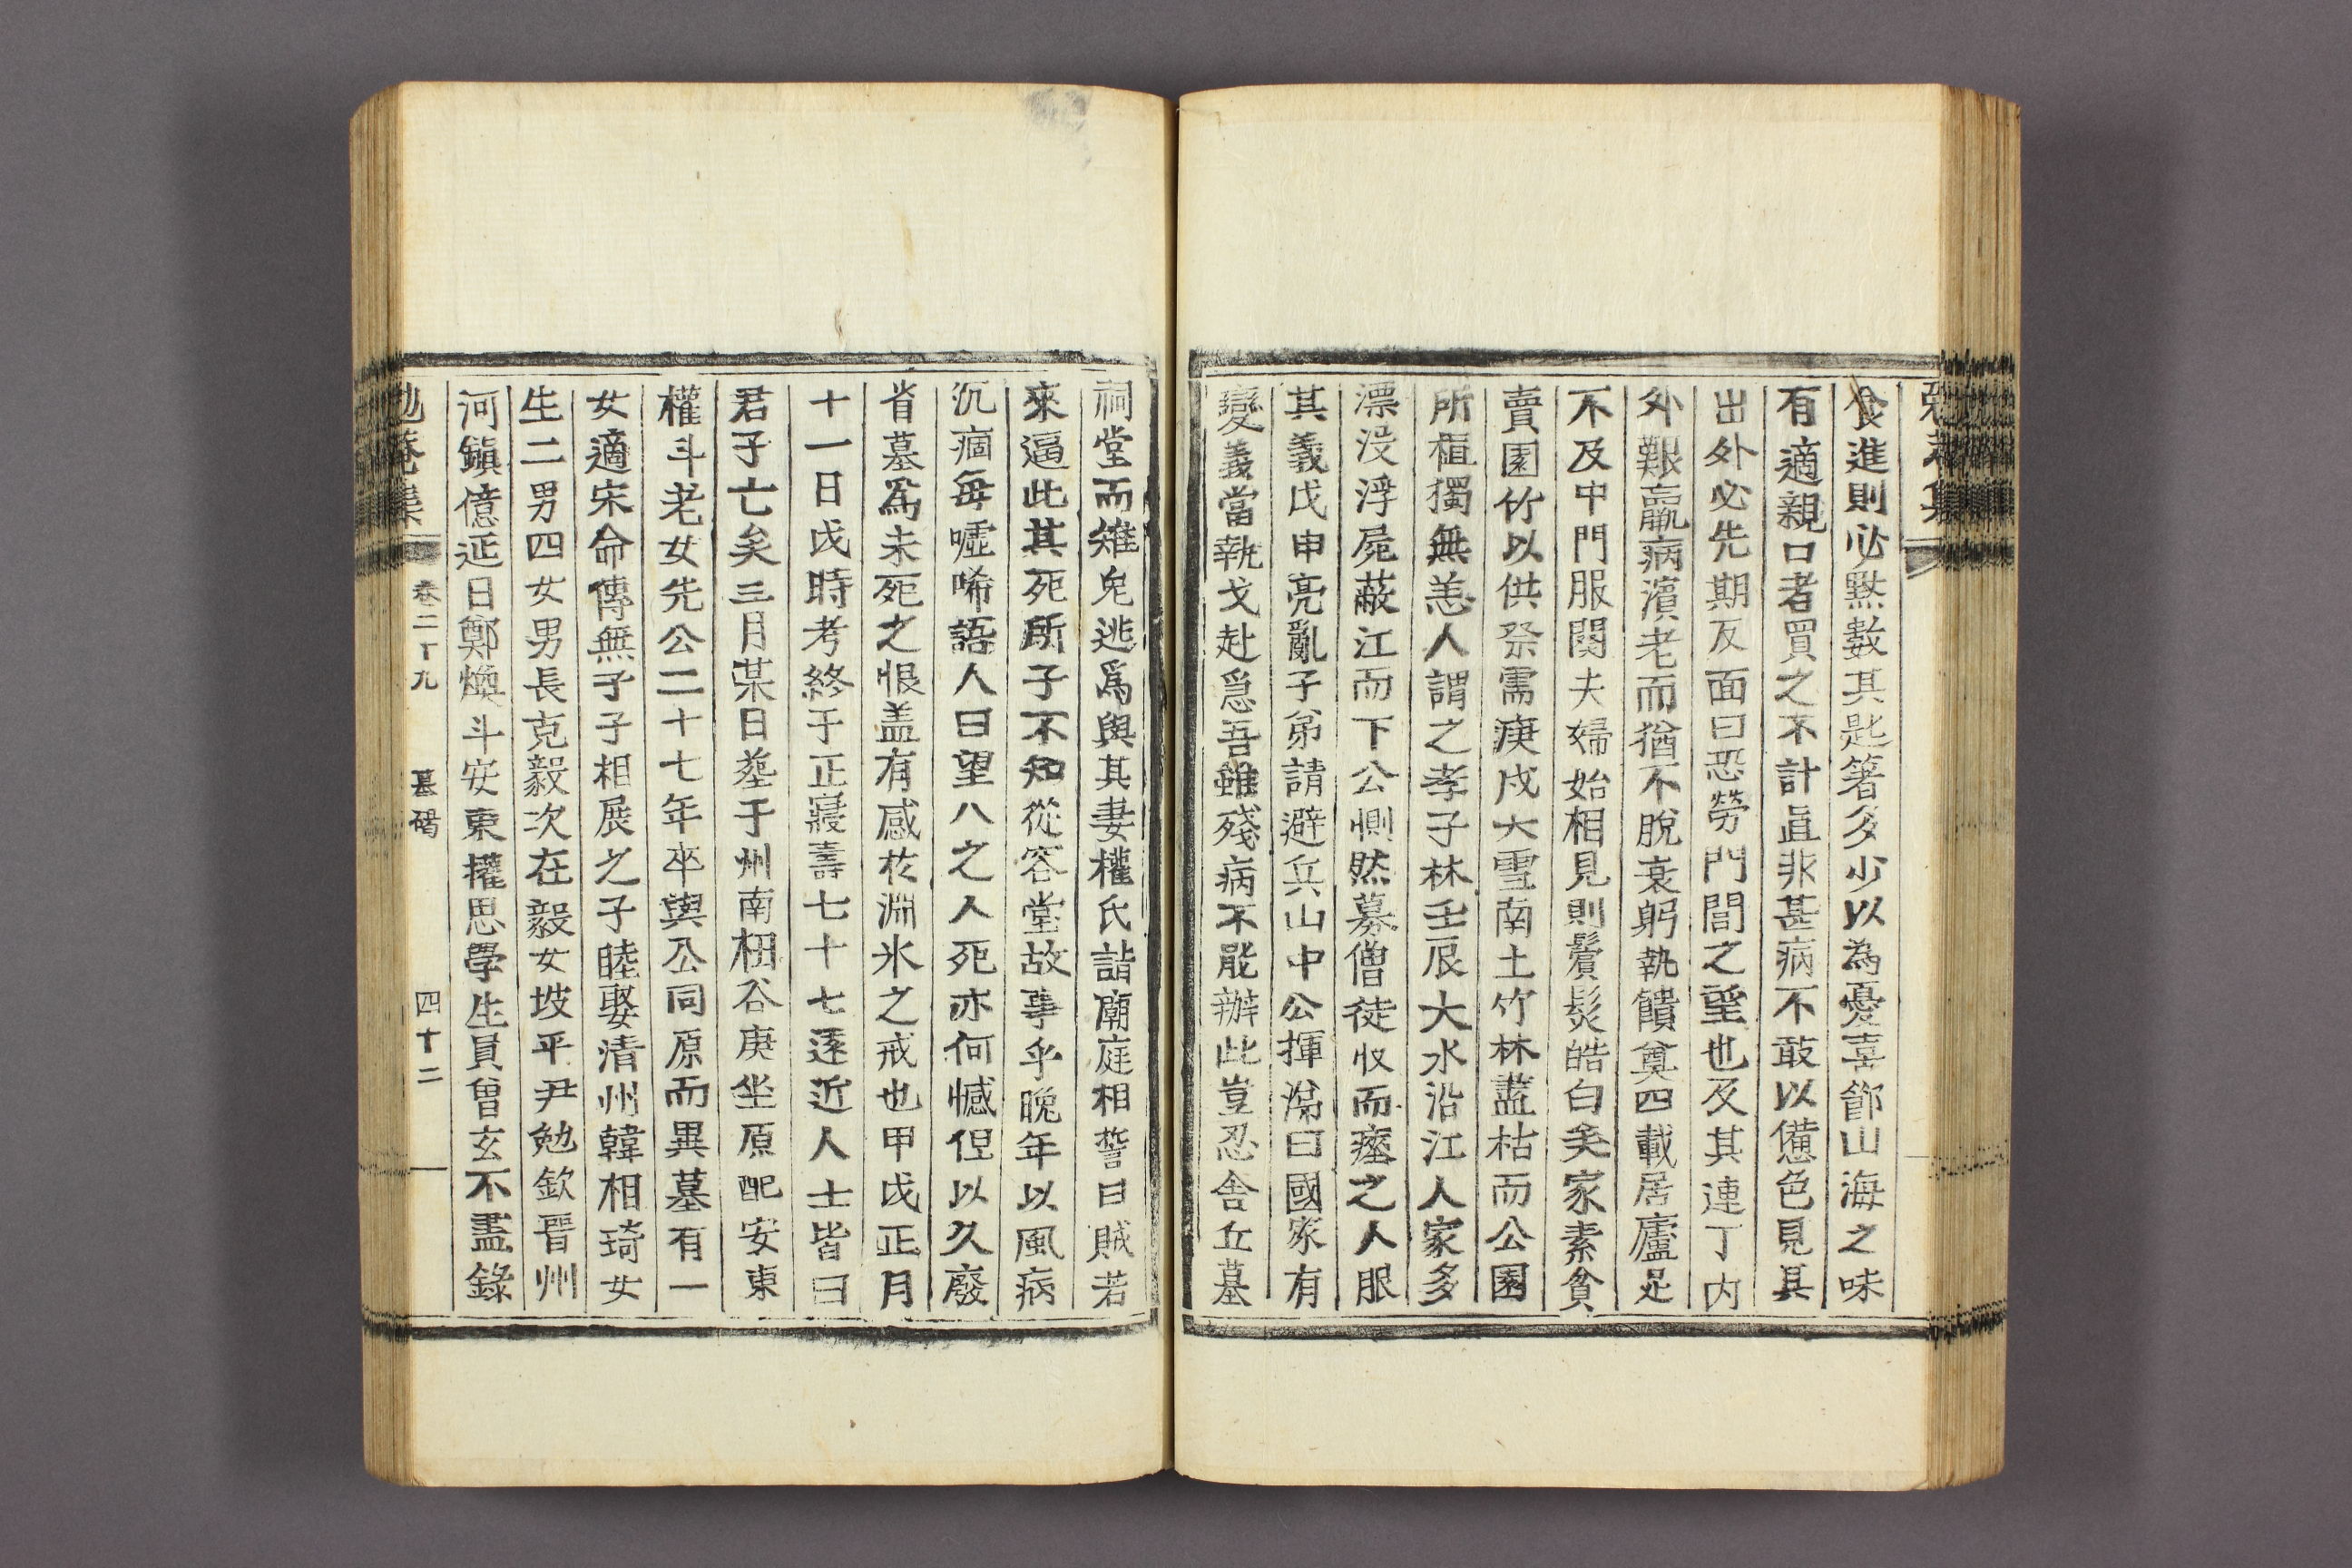 食進則必黙數其匙箸多少以為憂喜節山海之味
有適親口者買之不計直非甚病不敢以憊色見其
出外必先期反面曰恐勞門閭之望也及其連丁内
外艱羸病濱老而猶不脫衰躬執饋奠四載居廬足
不及中門服闋夫婦始相見則鬢髮皓白矣家素貧
賣園竹以供祭需庚戌大雪南土竹林盡枯而公園
所植獨無恙人謂之孝子林壬辰大水沿江人家多
漂没浮屍蔽江而下公惻然募僧徒收而瘞之人服
其義戊申亮亂子弟請避兵山中公揮涕曰國家有
變義當執戈赴急吾雖殘病不能辦此豈忍舍丘墓
祠堂而雉兔逃爲與其妻權氏詣廟庭相誓曰賊若
來逼此其死所子不知從容堂故事乎晚年以風病
沉痼每噓唏語人曰望八之人死亦何憾但以久廢
省墓爲未死之恨盖有感於淵氷之戒也甲戌正月
十一日戌時考終于正寢壽七十七遠近人士皆曰
君子亡矣三月某日葬于州南杻谷庚坐原配安東
權斗老女先公二十七年卒與公同原而異墓有一
女適宋命傳無子子相展之子睦娶清州韓相琦女
生二男四女男長克毅次在毅女坡平尹勉欽晉州
河鎭億延日鄭煥斗安東權思學生員曾玄不盡錄
卷二十九
墓碣
四十二